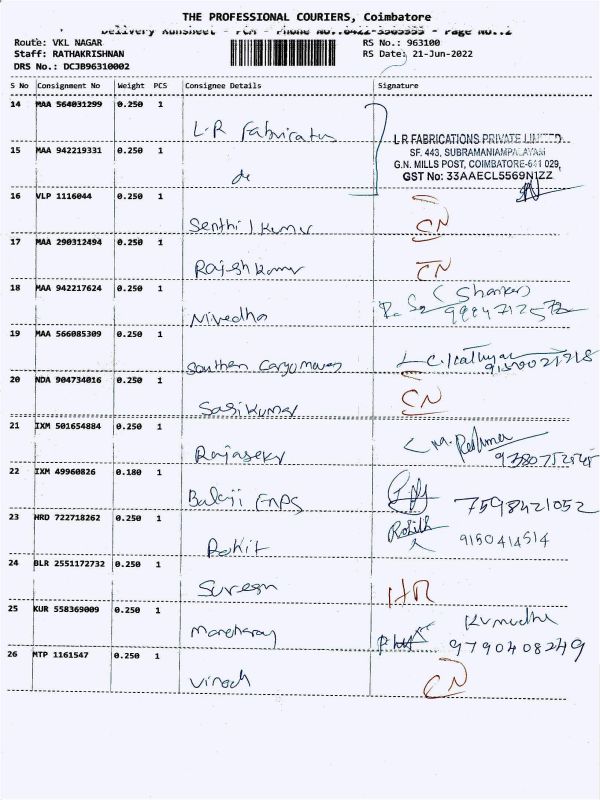 THE PROFESSIONAL COURIERS, Coimbatore
Delivery Runsheet - PCM - Phone No.:0422-3505555 - Page No.:2
Route: VKL NAGAR RS No.: 963100
Staff: RATHAKRISHNAN RS Date: 21-Jun-2022
DRS No.: DCJB96310002
S No Consignment No Weight PCS Consignee Details Signature
14 MAA 564031299 0.250 1 L.R Fabricatus
L R FABRICATIONS PRIVATE LIMITED
SF. 443, SUBRAMANIAMPALAYAM
G.N. MILLS POST, COIMBATORE-641 029,
GST No: 33AAECL5569N1ZZ
15 MAA 942219331 0.250 1 do
16 VLP 1116044 0.250 1 Senthil kumar CN
17 MAA 290312494 0.250 1 Rajesh kumar CN
18 MAA 942217624 0.250 1 Nivedha (Shankar)
19 MAA 566085309 0.250 1 Southern Cargo Movers
20 NDA 904734016 0.250 1 Sasikumar CN
21 IXM 501654884 0.250 1 Rajasekr M. Reshma
22 IXM 49960826 0.180 1 Balaji Enps 7598421052
23 HRD 722718262 0.250 1 Rohit Rohith 9150414514
24 BLR 2551172732 0.250 1 Suresh HR
25 KUR 558369009 0.250 1 Manoharaj Kumudha
9790408249
26 MTP 1161547 0.250 1 Vinoth CN